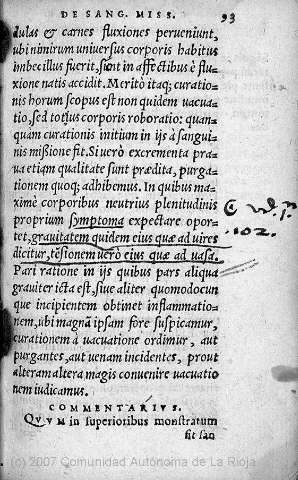 DE SANG. MISS. 93
dulas & carnes fluxiones perueniunt,
ubi nimirum uniuersus corporis habitus
imbecillus fuerit, sunt in affectibus è flu-
xione natis accidit. Meritò itaq; curatio-
nis horum scopus est non quidem uacua-
tio, sed totius corporis roboratio: quan-
quam curationis initium in ijs à sangui-
nis missione fit. Si uerò excrementa pra-
ua etiam qualitate sunt prædita, purga-
tionem quoq; adhibemus. In quibus ma-
ximè corporibus neutrius plenitudinis
proprium symptoma expectare opor-
tet, grauitatem quidem eius quæ ad uires
dicitur, tēsionem uerò eius quæ ad uasa.
102.
Pari ratione in ijs quibus pars aliqua
grauiter icta est, siue aliter quomodocun
que incipientem obtinet inflammatio-
nem, ubi magnā ipsam fore suspicamur,
curationem à uacuatione ordimur, aut
purgantes, aut uenam incidentes, prout
alteram altera magis conuenire uacuatio
nem iudicamus.
COMMENTARIVS.
QVVM in superioribus monstratum
sit san
(c) 2007 Comunidad Autónoma de La Rioja